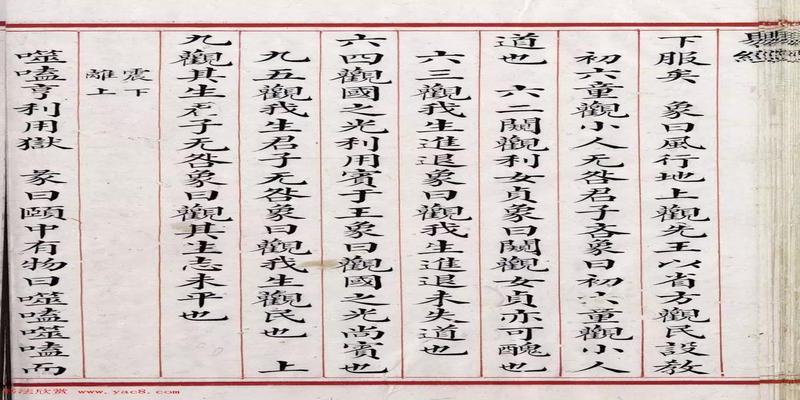 下服矣 象曰風行地上觀先王以省方觀民設教
初六童觀小人无咎君子吝象曰初六童觀小人
道也 六二闚觀利女貞象曰闚觀女貞亦可醜也
六三觀我生進退象曰觀我生進退未失道也
六四觀國之光利用賓于王象曰觀國之光尚賓也
九五觀我生君子无咎象曰觀我生觀民也 上
九觀其生君子无咎象曰觀其生志未平也
震下
離上
噬嗑亨利用獄 彖曰頤中有物曰噬嗑噬嗑而
法欣赏 www.yac8.com